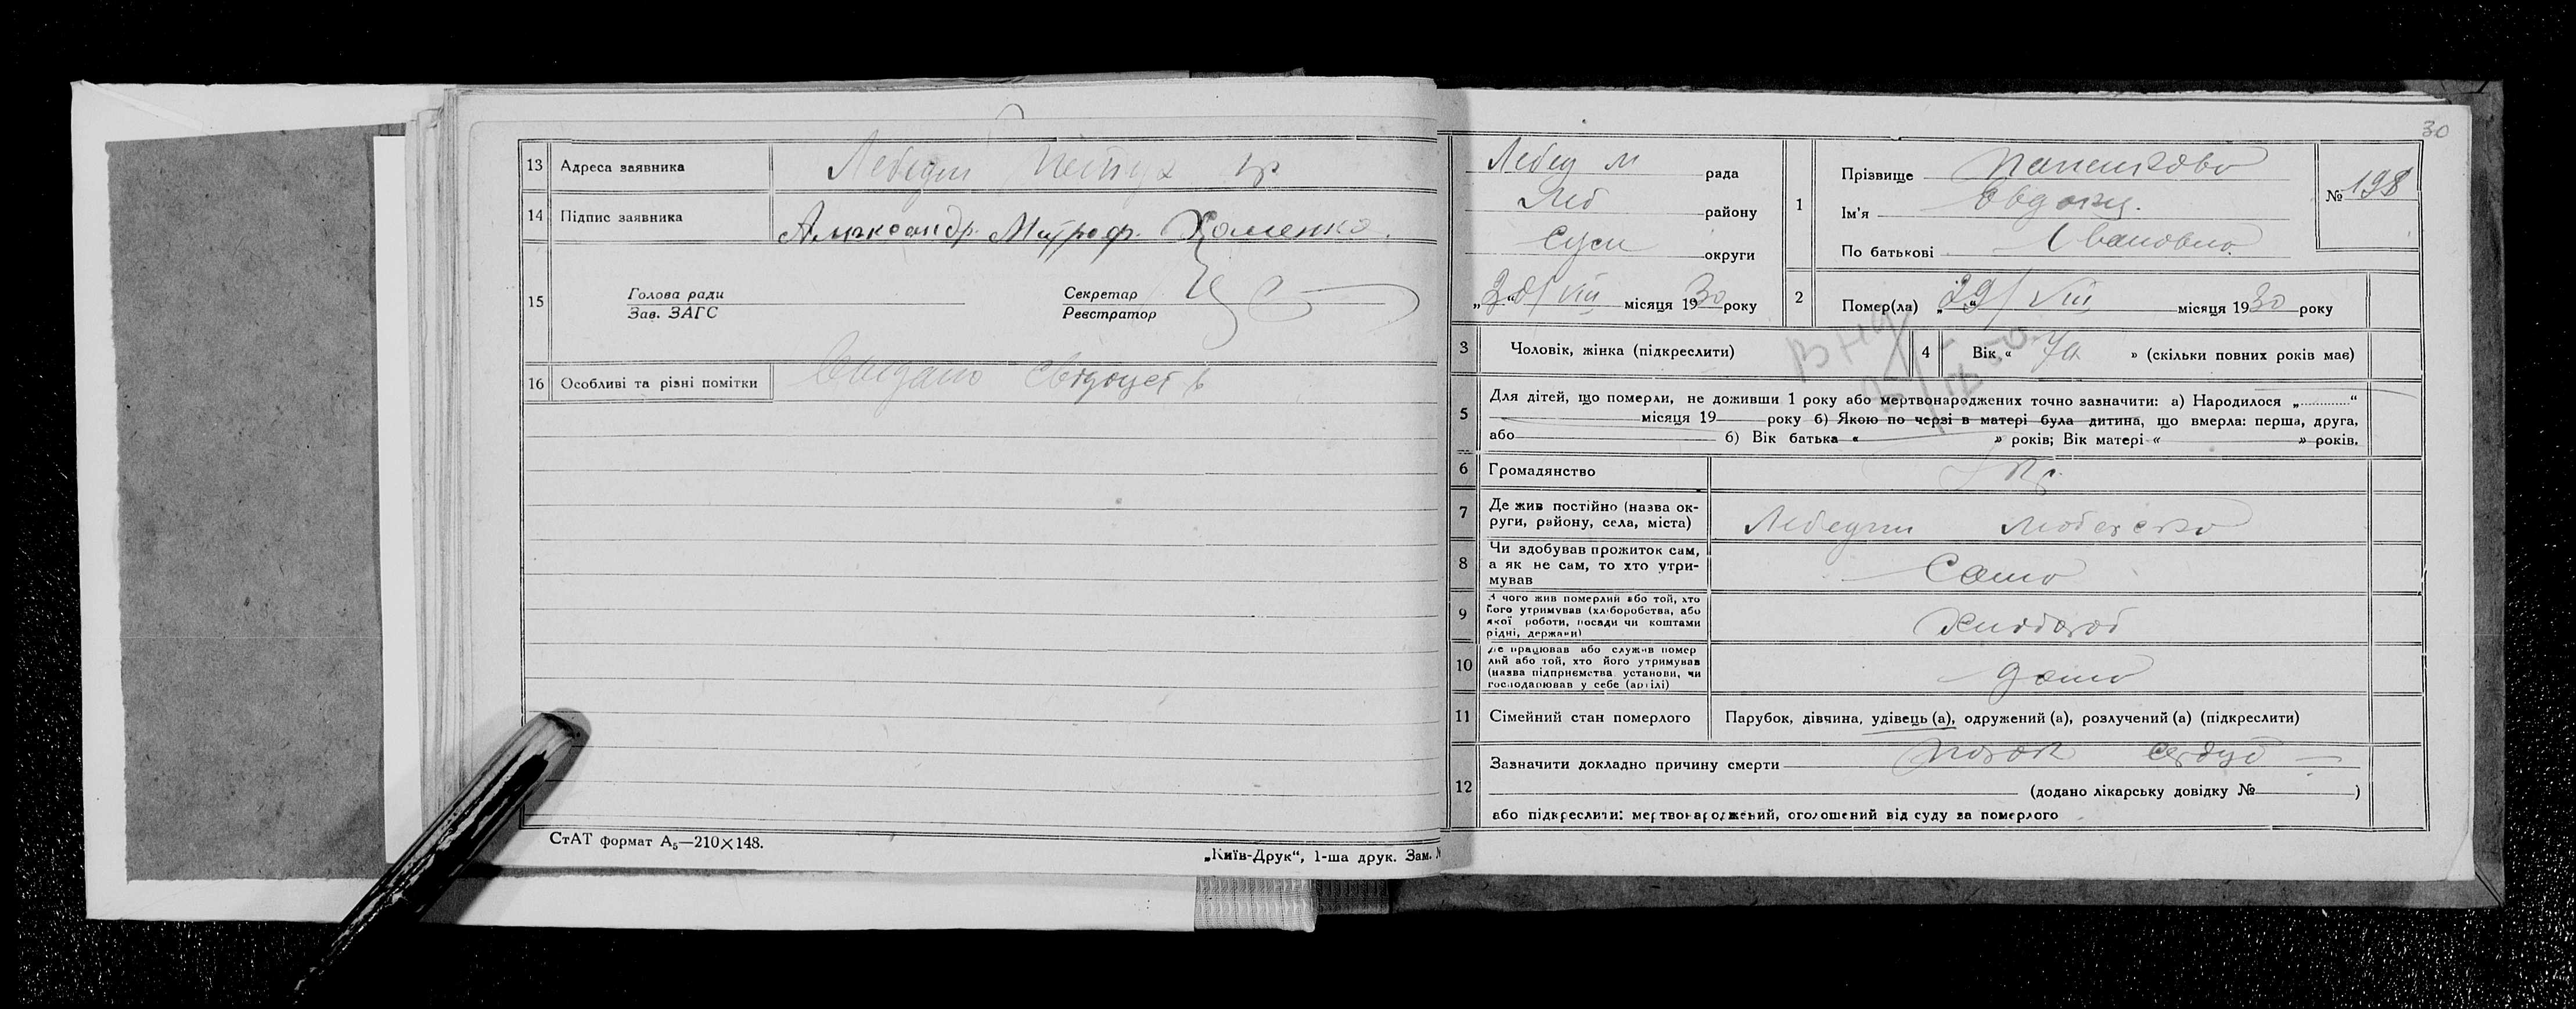 13 Адреса заявника Лебедин
14 Підпис заявника Александр. Митроф. Хоменко.
15 Голова ради Секретар
Зав. ЗАГС Реєстратор
16 Особливі та різні помітки Видано свідоцт
СтАТ формат А₅—210×148.
„Київ-Друк“, 1-ша друк. Зам. №
30
Лебед м рада
Леб району
Сум округи
VIII місяця 1930 року
1 Прізвище
Ім'я Євдокі.
По батькові Івановна
№ 198
2 Помер(ла) „29/VIII місяця 1930 року
3 Чоловік, жінка (підкреслити)
4 Вік « » (скільки повних років має)
5 Для дітей, що померли, не доживши 1 року або мертвонароджених точно зазначити: а) Народилося „ “
місяця 19 року б) Якою по черзі в матері була дитина, що вмерла: перша, друга,
або б) Вік батька « » років; Вік матері « » років.
6 Громадянство
7 Де жив постійно (назва ок-
руги, району, села, міста) Лебедин
8 Чи здобував прожиток сам,
а як не сам, то хто утри-
мував Сама
9 З чого жив померлий або той, хто
його утримував (хліборобства, або
якої роботи, посади чи коштами
рідні, держави) Хлібороб
10 Де працював або служив помер
лий або той, хто його утримував
(назва підприємства установи, чи
господарював у себе (артілі) дома
11 Сімейний стан померлого Парубок, дівчина, удівець (а), одружений (а), розлучений (а) (підкреслити)
12 Зазначити докладно причину смерти порок сердця
(додано лікарську довідку № )
або підкреслити: мертвонароджений, оголошений від суду за померлого